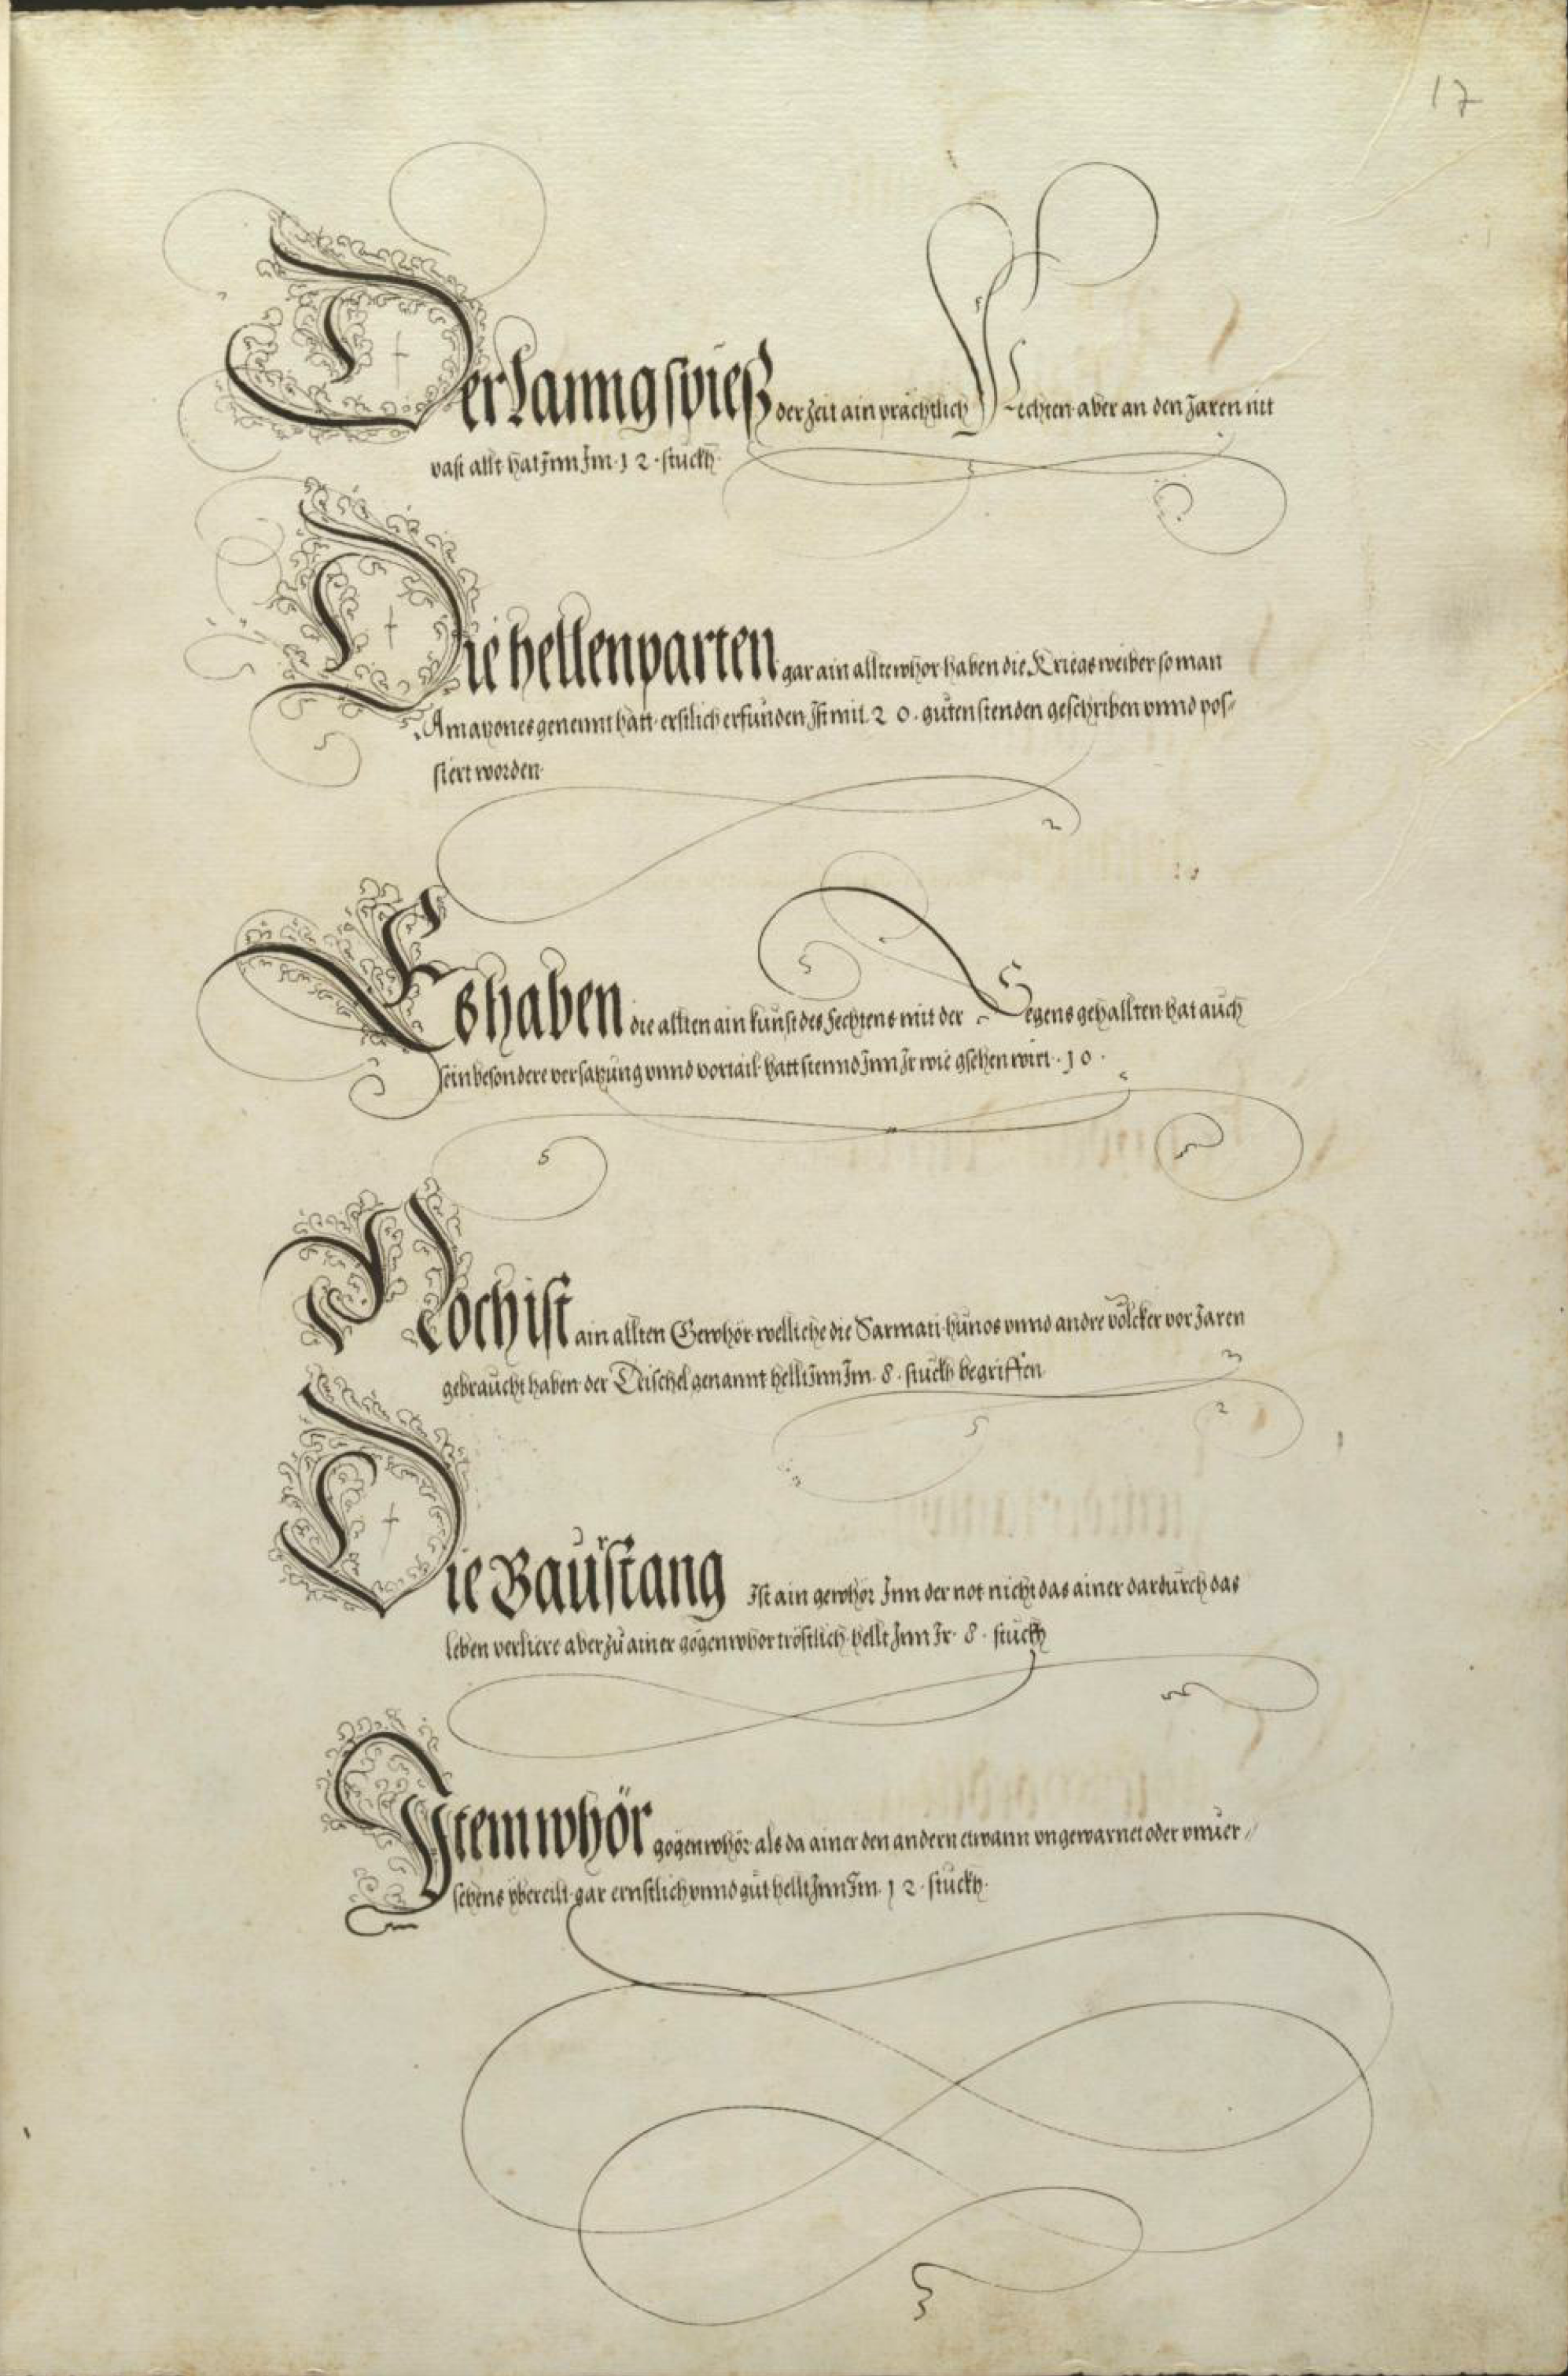 17
Der Lanngspieß der zeit ain prächtlich Fechten aber an den Jaren nit
vast allt hat Jnn Jm · 12 · stuckh
Die hellenparten gar ain allte whor haben die Kriegs weiber so man
Amazones genennt hatt erstlich erfunden Jst mit 20 · guten stenden geschriben vnnd pos¬
siert worden
Es haben die allten ain kunst des fechtens mit der Segens gehallten hat auch
sein besondere versatzung vnnd vortail hatt stennd Jnn Jr wie gsehen wirt · 10 ·
Noch ist ain allten Gewhör welliche die Sarmati hunos vnnd andre völcker vor Jaren
gebraucht haben der Drischel genannt hellt Jnn Jm · 8 · stuckh begriffen
Die Baurstang Jst ain gewhör Jnn der not nicht das ainer dardurch das
leben verliere aber zu ainer gögenwhor tröstlich hellt Jnn Jr · 8 · stuckh
Ytem whör gögen whör als da ainer den andern etwann vngewarnet oder vnuer¬
sehens vbereilt gar ernstlich vnnd gut hellt Jnn Jm · 12 · stuckh